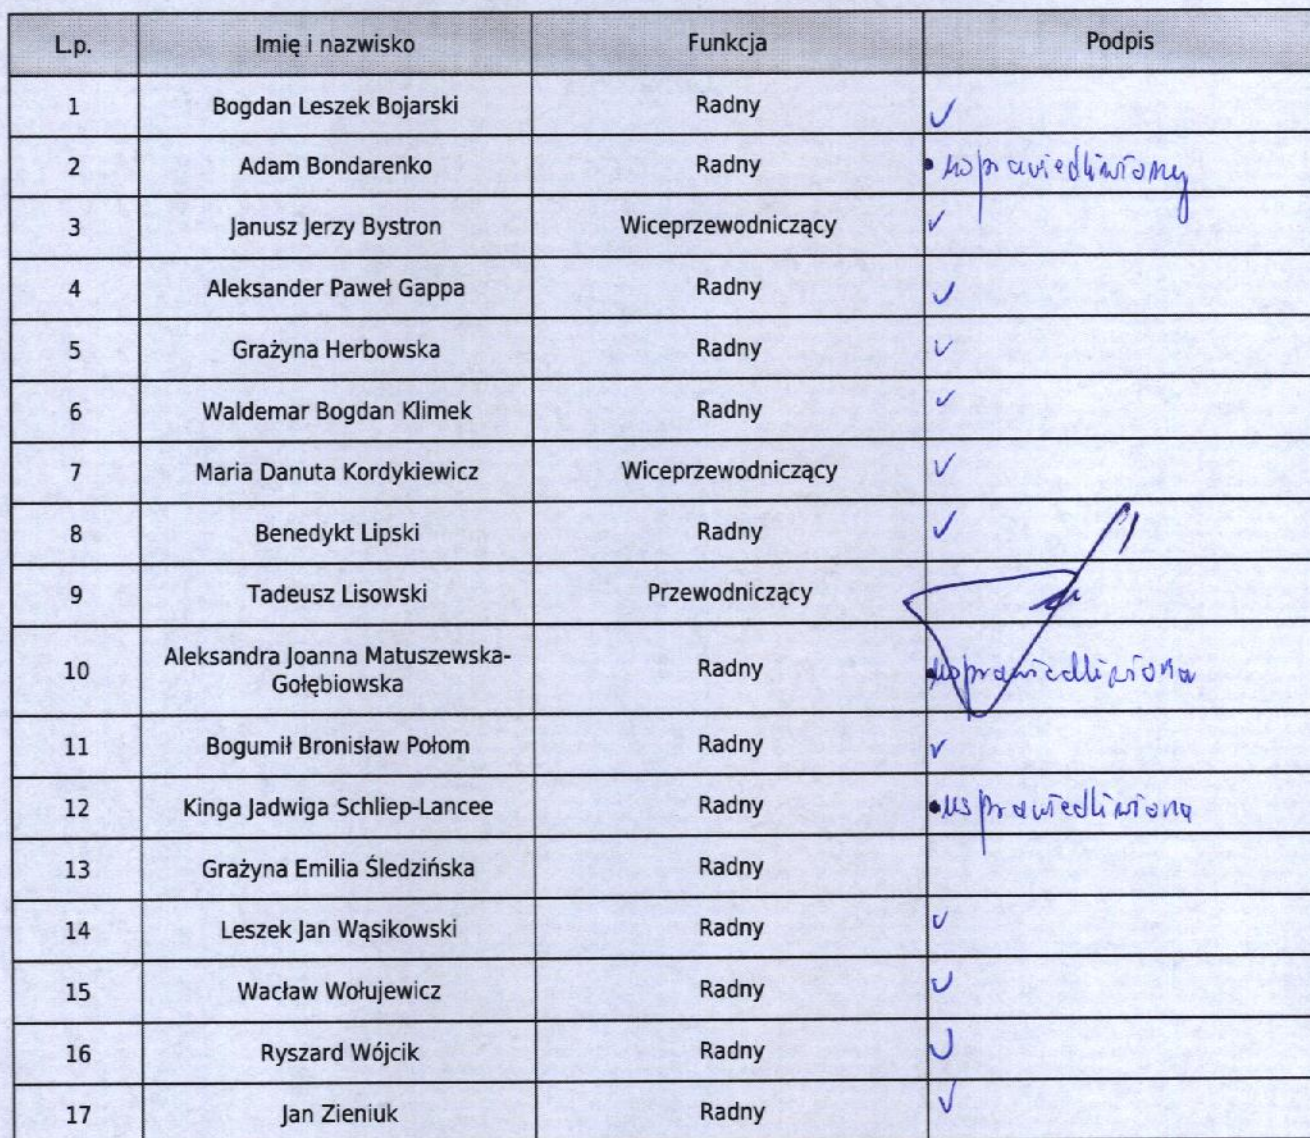 L.p. Imię i nazwisko Funkcja Podpis
1 Bogdan Leszek Bojarski Radny ✓
2 Adam Bondarenko Radny • usprawiedliwiony
3 Janusz Jerzy Bystron Wiceprzewodniczący ✓
4 Aleksander Paweł Gappa Radny ✓
5 Grażyna Herbowska Radny ✓
6 Waldemar Bogdan Klimek Radny ✓
7 Maria Danuta Kordykiewicz Wiceprzewodniczący ✓
8 Benedykt Lipski Radny ✓
9 Tadeusz Lisowski Przewodniczący
10 Aleksandra Joanna Matuszewska-
Gołębiowska Radny • usprawiedliwiona
11 Bogumił Bronisław Połom Radny ✓
12 Kinga Jadwiga Schliep-Lancee Radny • usprawiedliwiona
13 Grażyna Emilia Śledzińska Radny
14 Leszek Jan Wąsikowski Radny ✓
15 Wacław Wołujewicz Radny ✓
16 Ryszard Wójcik Radny ✓
17 Jan Zieniuk Radny ✓